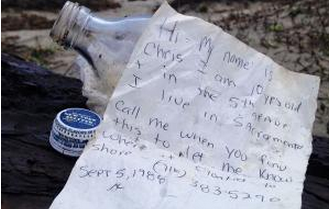 Hi - My name is
Chris I am 10 years old
I in the 5th grade
I live in Sacramento
Call me when you find
this to let me know
shore
SEPT 5, 1984
383-5290